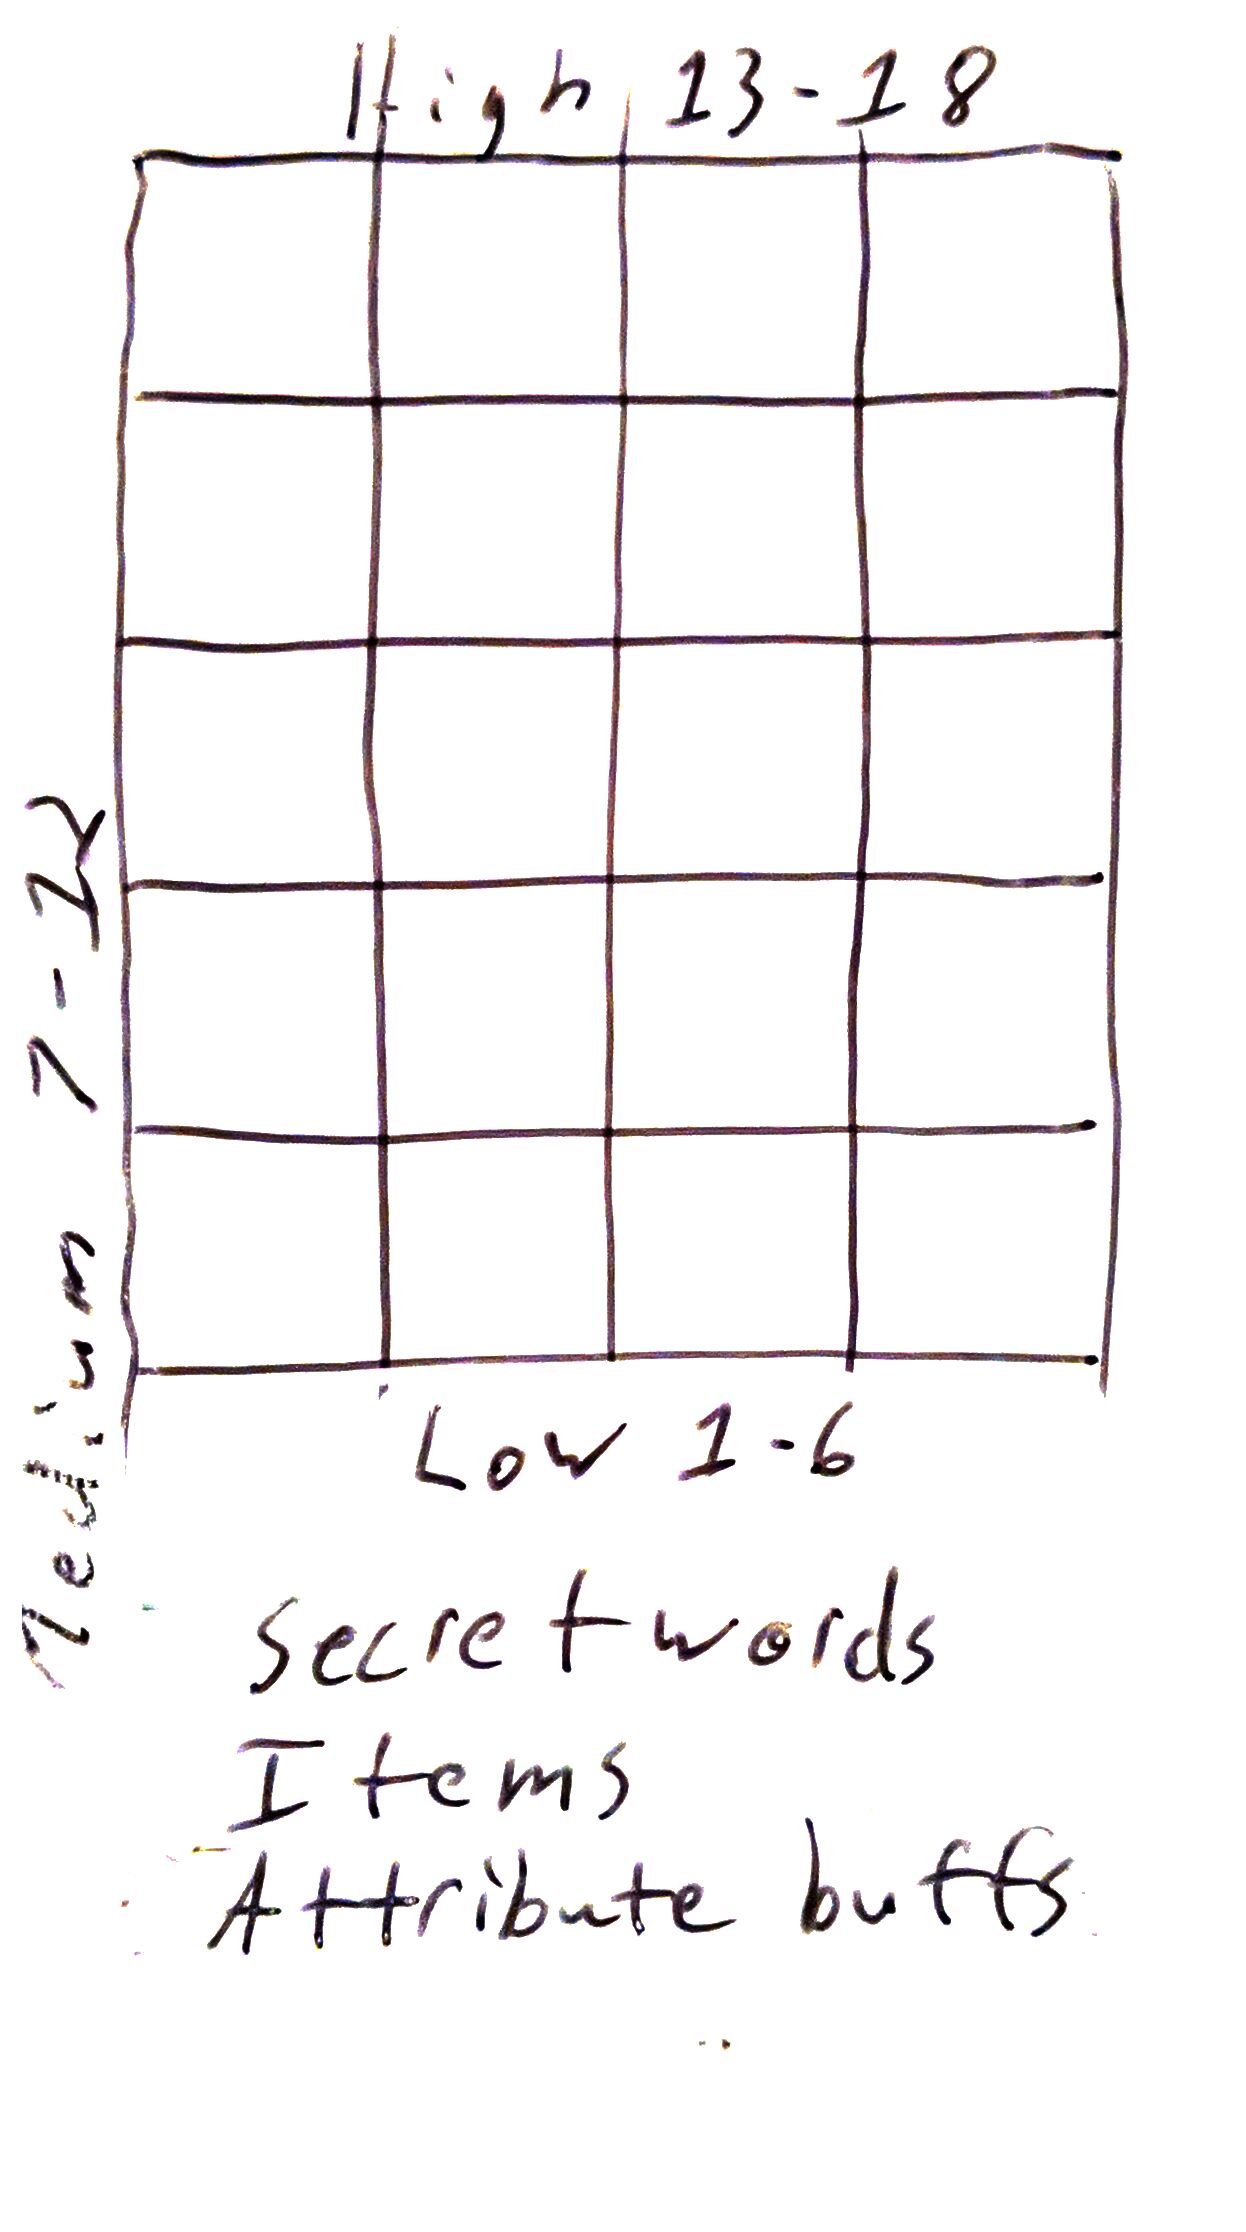 High 13-18
Medium 7-12
Low 1-6
Secret words
Items
Attribute buffs